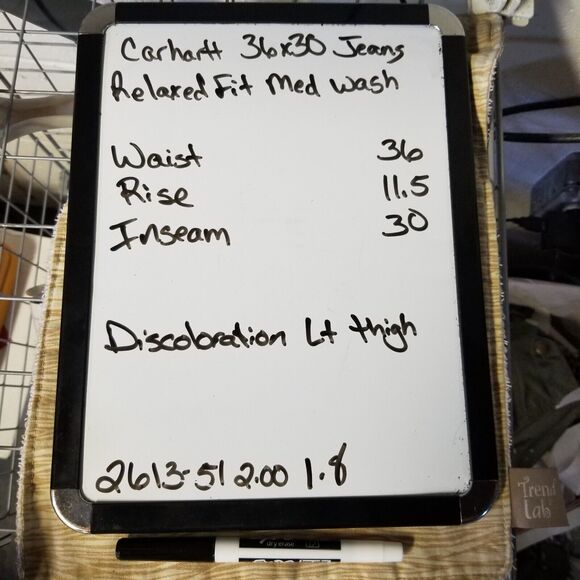 Carhartt 36x30 Jeans
Relaxed Fit Med Wash
Waist 36
Rise 11.5
Inseam 30
Discoloration Lt thigh
2613-51 2.00 1.8
Trend
Lab
dry erase